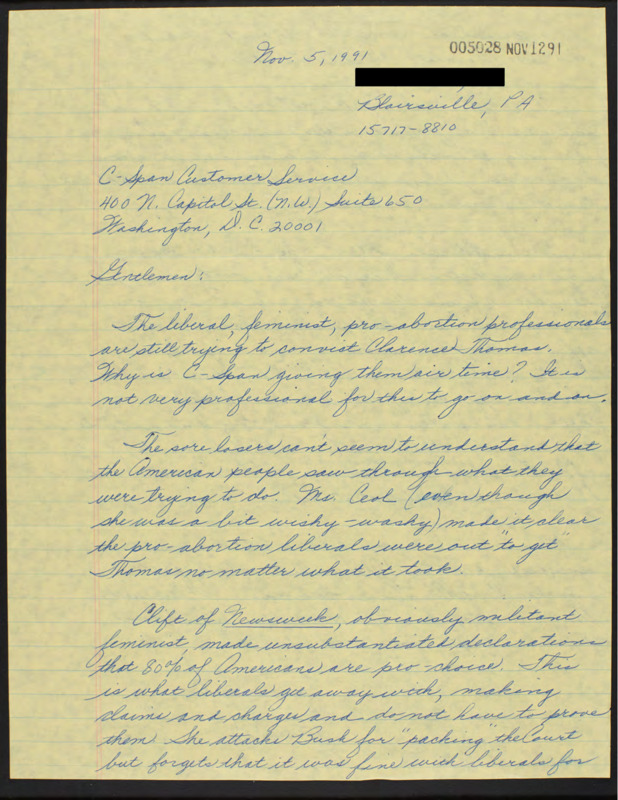 Nov. 5, 1991
005028 NOV1291
Blairsville, PA
15717-8810
C-Span Customer Service
400 N. Capitol St. (N.W.) Suite 650
Washington, D.C. 20001
Gentlemen:
The liberal, feminist, pro-abortion professionals
are still trying to convict Clarence Thomas.
Why is C-Span giving them air time? It is
not very professional for this to go on and on.
The sore losers can't seem to understand that
the American people saw through what they
were trying to do. Ms. Ceol (even though
she was a bit wishy-washy) made it clear
the pro-abortion liberals were out "to get"
Thomas no matter what it took.
Clift of Newsweek, obviously militant
feminist, made unsubstantiated declarations
that 80% of Americans are pro-choice. This
is what liberals get away with, making
claims and charges and do not have to prove
them. She attacks Bush for "packing" the Court
but forgets that it was fine with liberals for